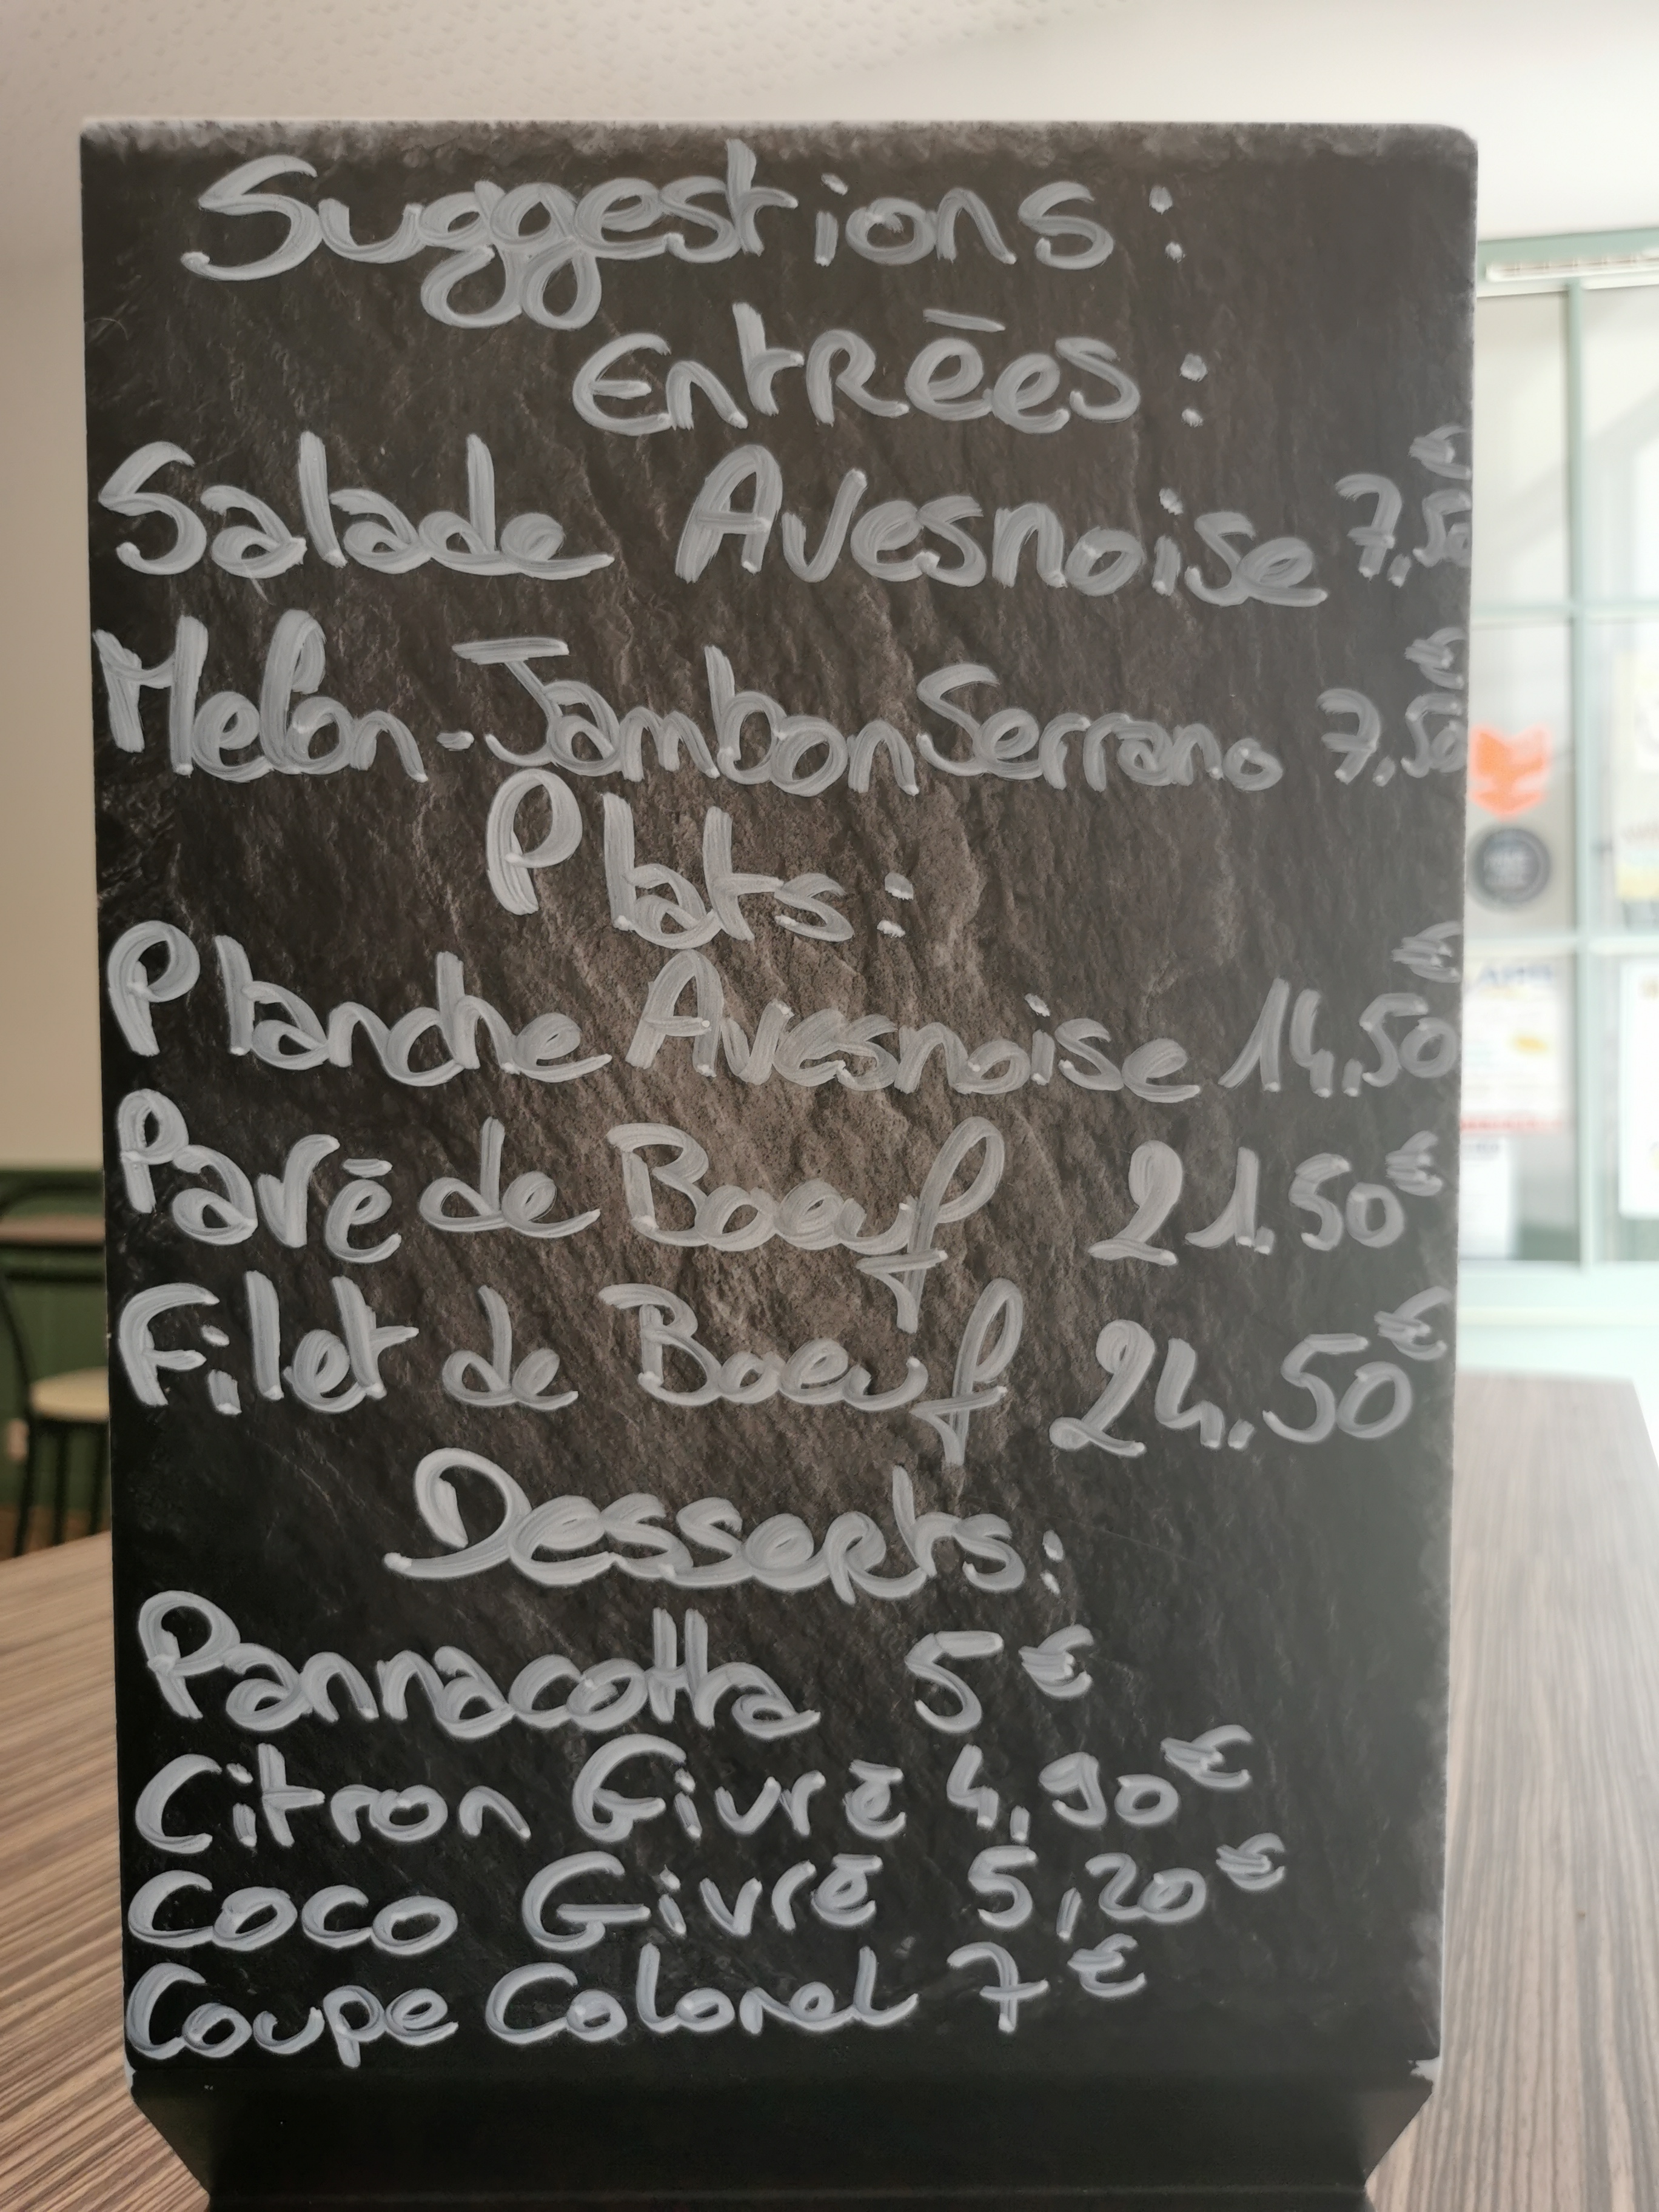 Suggestions :
Entrées :
Salade Avesnoise 7,50€
Melon-Jambon Serrano 7,50€
Plats :
Planche Avesnoise 14,50€
Pavé de Boeuf 21,50€
Filet de Boeuf 24,50€
Desserts :
Pannacotta 5€
Citron Givré 4,90€
Coco Givré 5,20€
Coupe Colonel 7€